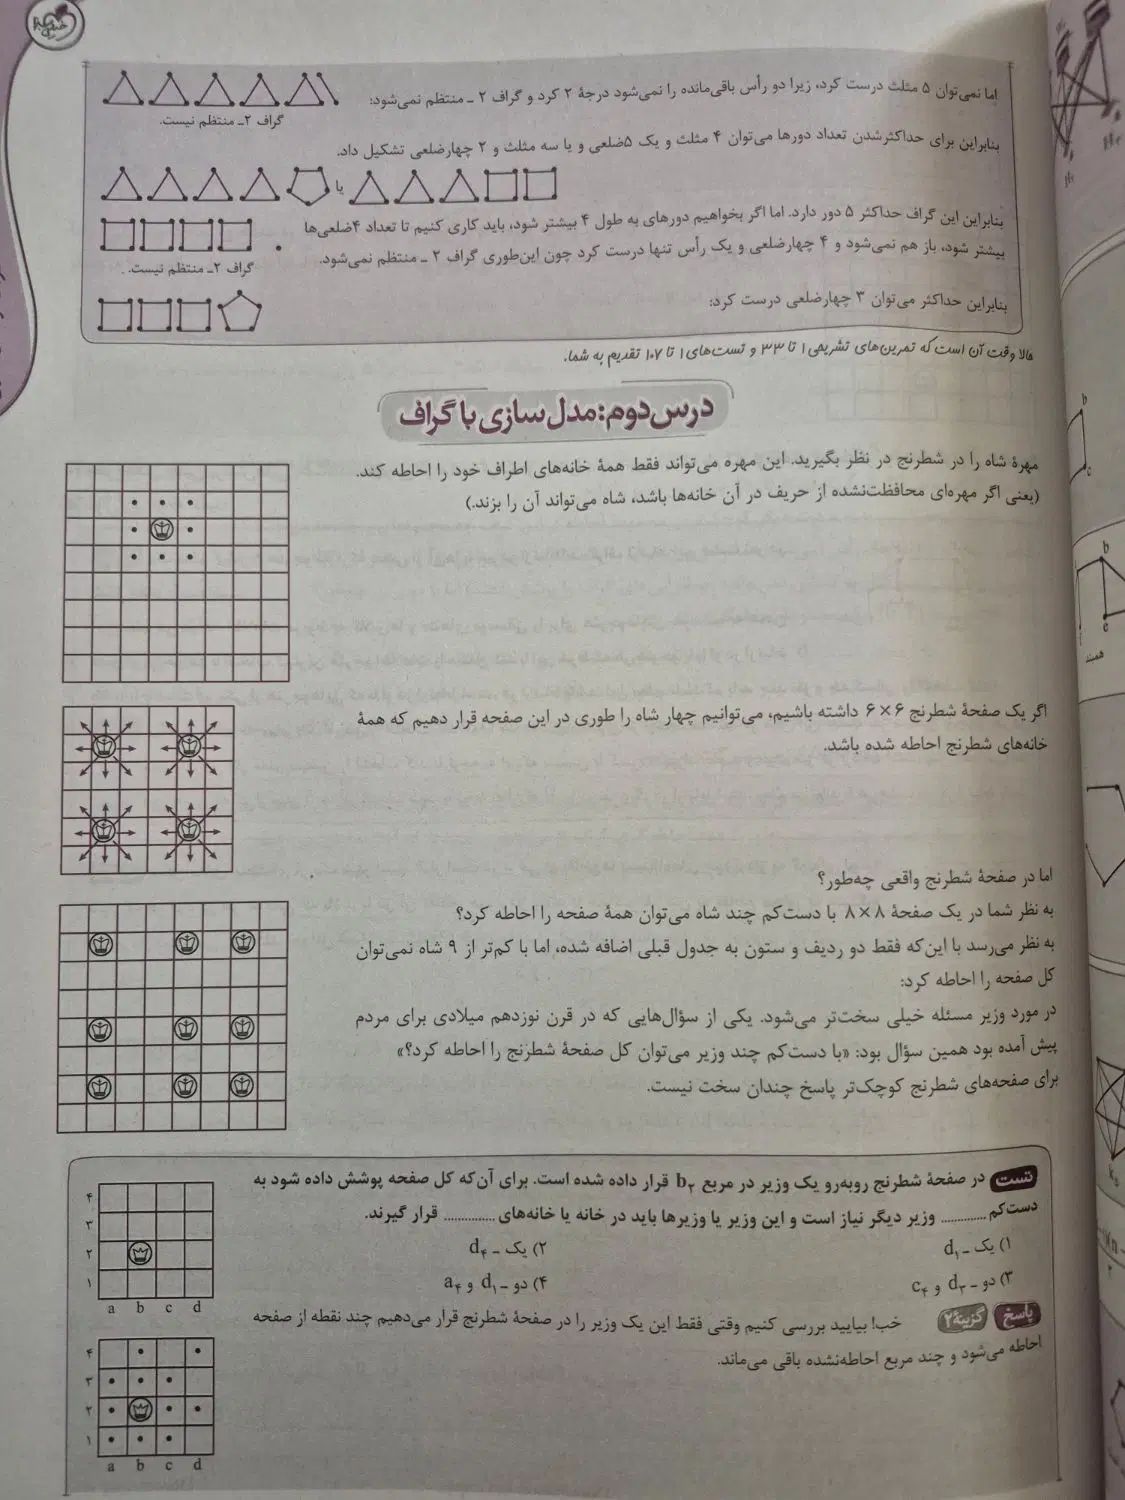 اما نمی‌توان ۵ مثلث درست کرد، زیرا دو رأس باقی‌مانده را نمی‌شود درجهٔ ۲ کرد و گراف ۲ ـ منتظم نمی‌شود:
گراف ۲ـ منتظم نیست.
بنابراین برای حداکثرشدن تعداد دورها می‌توان ۴ مثلث و یک ۵ضلعی و یا سه مثلث و ۲ چهارضلعی تشکیل داد.
یا
بنابراین این گراف حداکثر ۵ دور دارد. اما اگر بخواهیم دورهای به طول ۴ بیشتر شود، باید کاری کنیم تا تعداد ۴ضلعی‌ها
بیشتر شود، باز هم نمی‌شود و ۴ چهارضلعی و یک رأس تنها درست کرد چون این‌طوری گراف ۲ ـ منتظم نمی‌شود.
گراف ۲ـ منتظم نیست.
بنابراین حداکثر می‌توان ۳ چهارضلعی درست کرد:
حالا وقت آن است که تمرین‌های تشریحی ۱ تا ۳۳ و تست‌های ۱ تا ۱۰۷ تقدیم به شما.
درس دوم: مدل‌سازی با گراف
مهرهٔ شاه را در شطرنج در نظر بگیرید. این مهره می‌تواند فقط همهٔ خانه‌های اطراف خود را احاطه کند.
(یعنی اگر مهره‌ای محافظت‌نشده از حریف در آن خانه‌ها باشد، شاه می‌تواند آن را بزند.)
اگر یک صفحهٔ شطرنج ۶×۶ داشته باشیم، می‌توانیم چهار شاه را طوری در این صفحه قرار دهیم که همهٔ
خانه‌های شطرنج احاطه شده باشد.
اما در صفحهٔ شطرنج واقعی چه‌طور؟
به نظر شما در یک صفحهٔ ۸×۸ با دست‌کم چند شاه می‌توان همهٔ صفحه را احاطه کرد؟
به نظر می‌رسد با این‌که فقط دو ردیف و ستون به جدول قبلی اضافه شده، اما با کم‌تر از ۹ شاه نمی‌توان
کل صفحه را احاطه کرد:
در مورد وزیر مسئله خیلی سخت‌تر می‌شود. یکی از سؤال‌هایی که در قرن نوزدهم میلادی برای مردم
پیش آمده بود همین سؤال بود: «با دست‌کم چند وزیر می‌توان کل صفحهٔ شطرنج را احاطه کرد؟»
برای صفحه‌های شطرنج کوچک‌تر پاسخ چندان سخت نیست.
تست در صفحهٔ شطرنج روبه‌رو یک وزیر در مربع b۲ قرار داده شده است. برای آن‌که کل صفحه پوشش داده شود به
دست‌کم ............ وزیر دیگر نیاز است و این وزیر یا وزیرها باید در خانه یا خانه‌های ............ قرار گیرند.
۱) یک ـ d۱ ۲) یک ـ d۴
۳) دو ـ d۳ و c۴ ۴) دو ـ d۱ و a۴
۴
۳
۲
۱
a b c d
پاسخ گزینهٔ ۲ خب! بیایید بررسی کنیم وقتی فقط این یک وزیر را در صفحهٔ شطرنج قرار می‌دهیم چند نقطه از صفحه
احاطه می‌شود و چند مربع احاطه‌نشده باقی می‌ماند.
۴
۳
۲
۱
a b c d